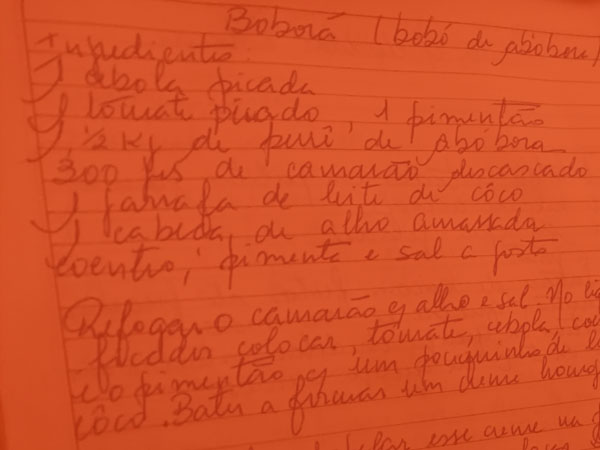 Boborá (bobó de abóbora)
Ingredientes:
1 cebola picada
1 tomate picado, 1 pimentão
1/2 Kg de purê de abóbora
300 grs de camarão descascado
1 garrafa de leite de côco
1 cabeça de alho amassada
coentro, pimenta e sal a gosto
Refogar o camarão c/ alho e sal. No
colocar, tomate, cebola,
e o pimentão c/ um pouquinho de
côco. Bater a formar um creme
esse creme na